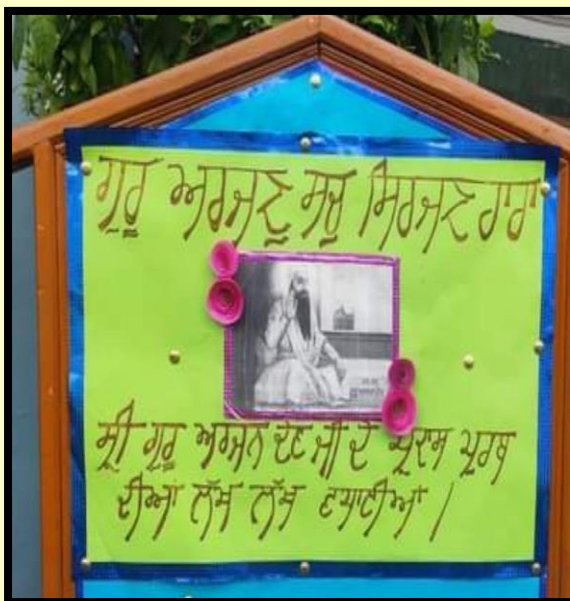 ਗੁਰੂ ਅਰਜਨੁ ਸਚੁ ਸਿਰਜਣਹਾਰਾ
ਸ੍ਰੀ ਗੁਰੂ ਅਰਜਨ ਦੇਵ ਜੀ ਦੇ ਪ੍ਰਕਾਸ਼ ਪੁਰਬ
ਦੀਆਂ ਲੱਖ ਲੱਖ ਵਧਾਈਆਂ।